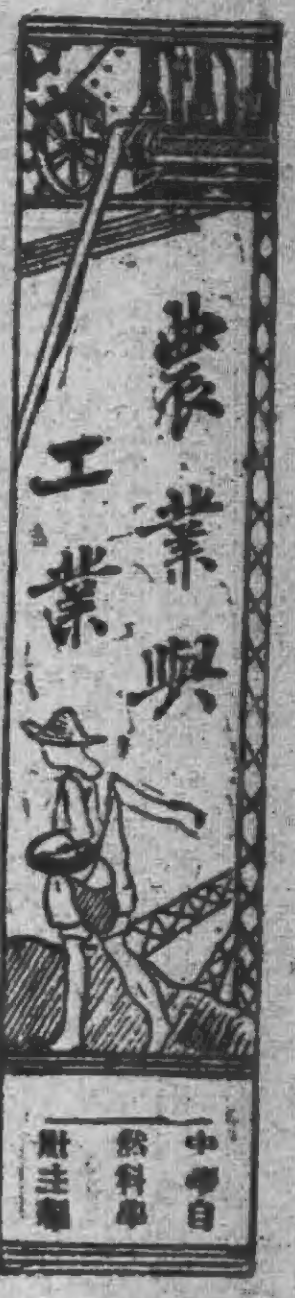 農業與
工業
中學自
然科學
社主編